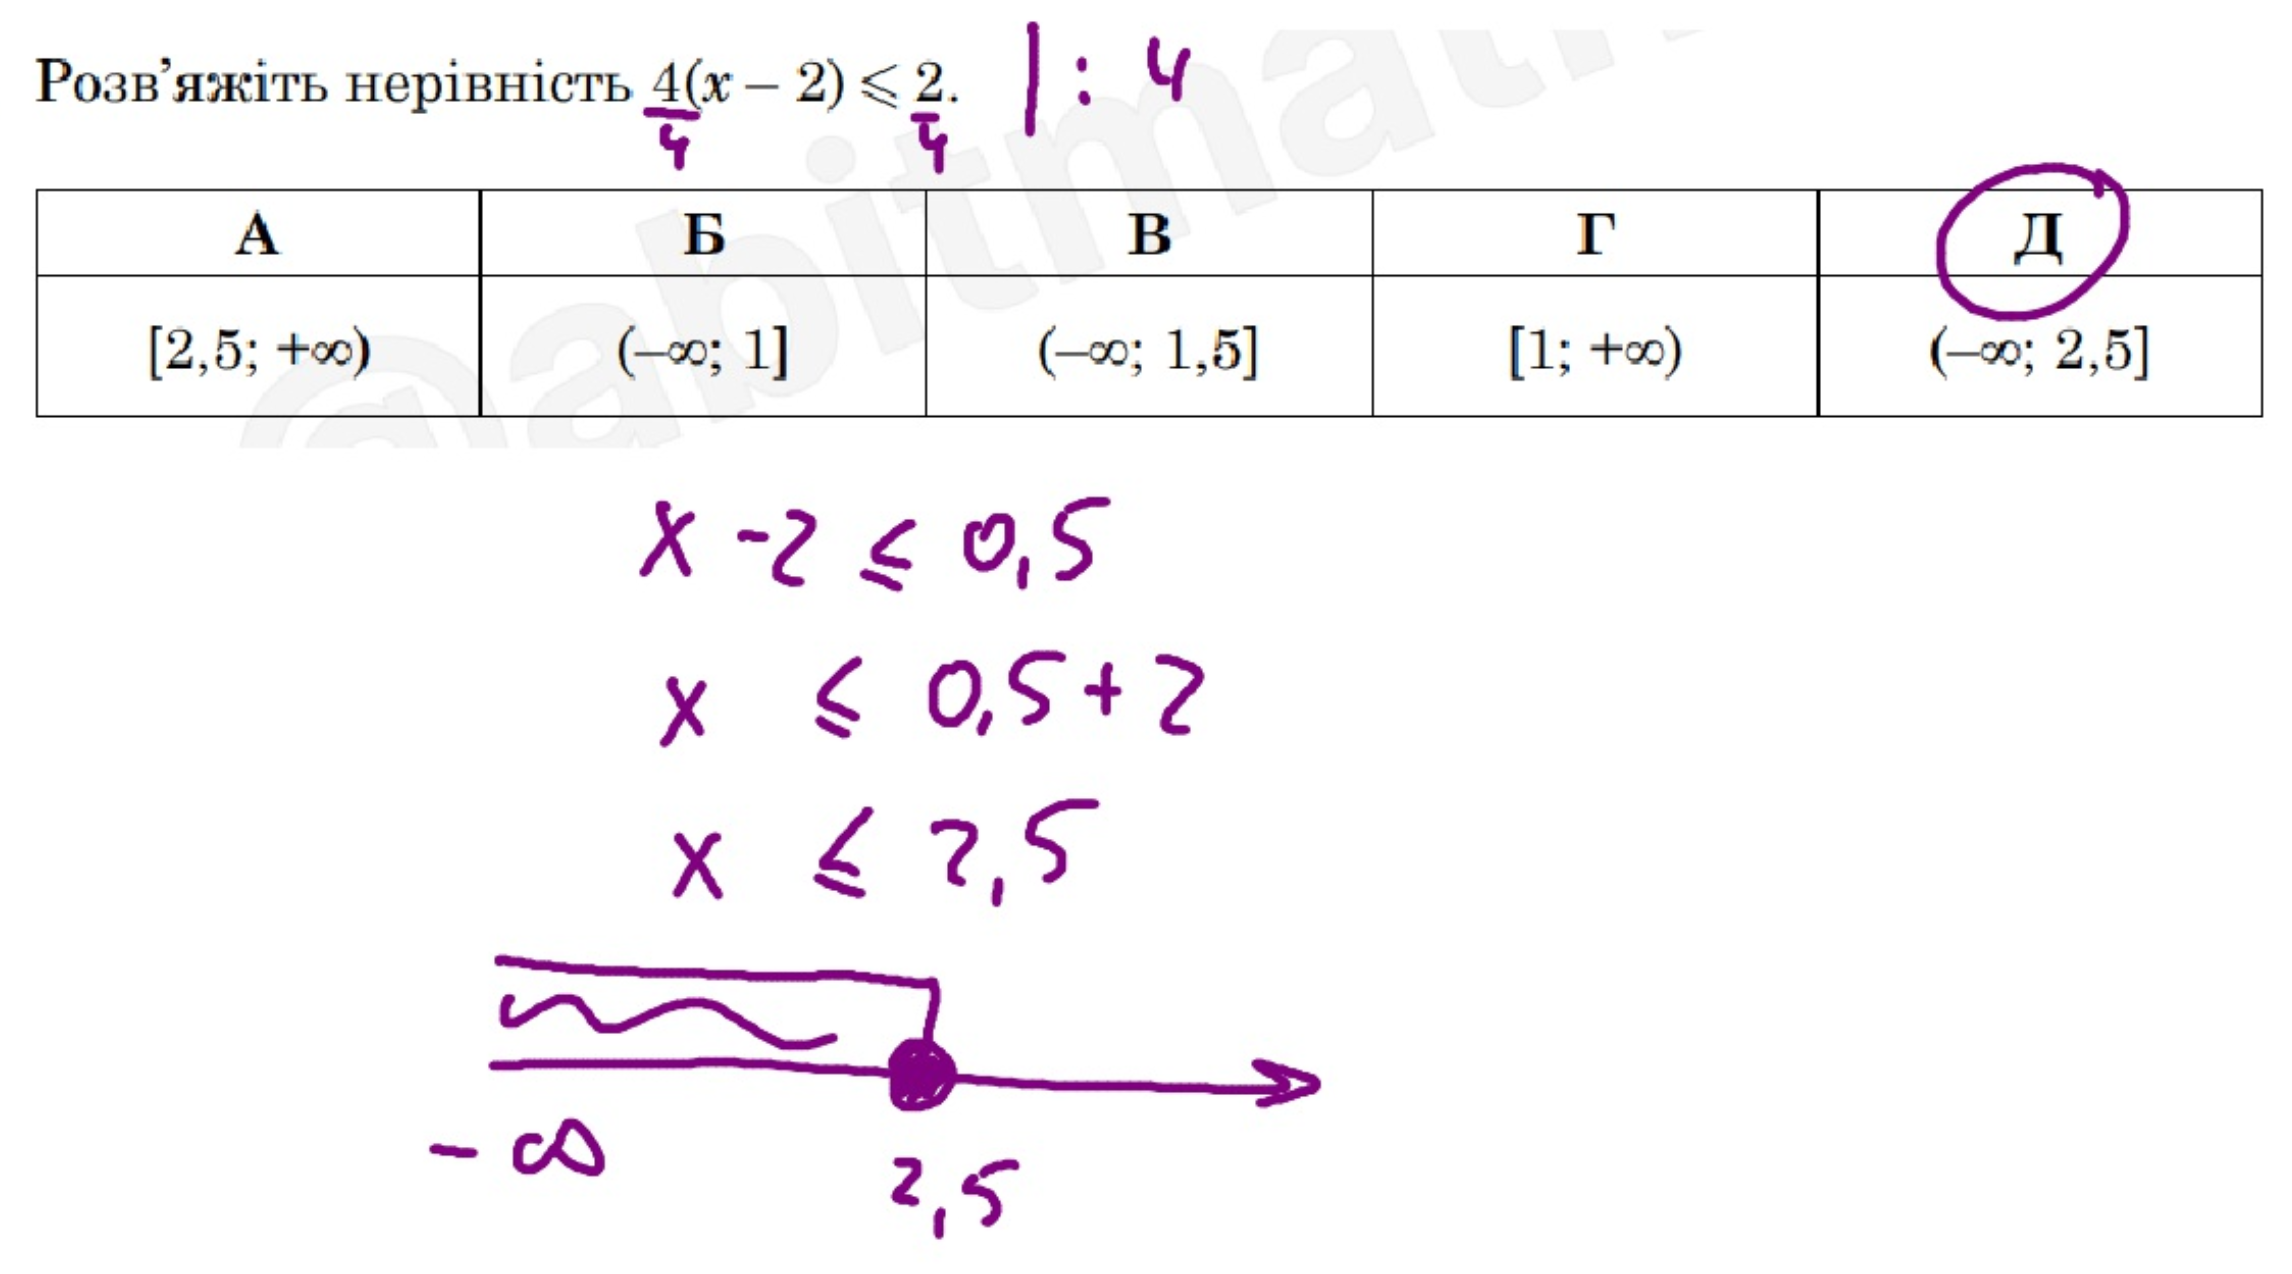 Розв’яжіть нерівність 4(x – 2) ⩽ 2. | : 4
4 4
А Б В Г Д
[2,5; +∞) (–∞; 1] (–∞; 1,5] [1; +∞) (–∞; 2,5]
x - 2 ≤ 0,5
x ≤ 0,5 + 2
x ≤ 2,5
- ∞ 2,5